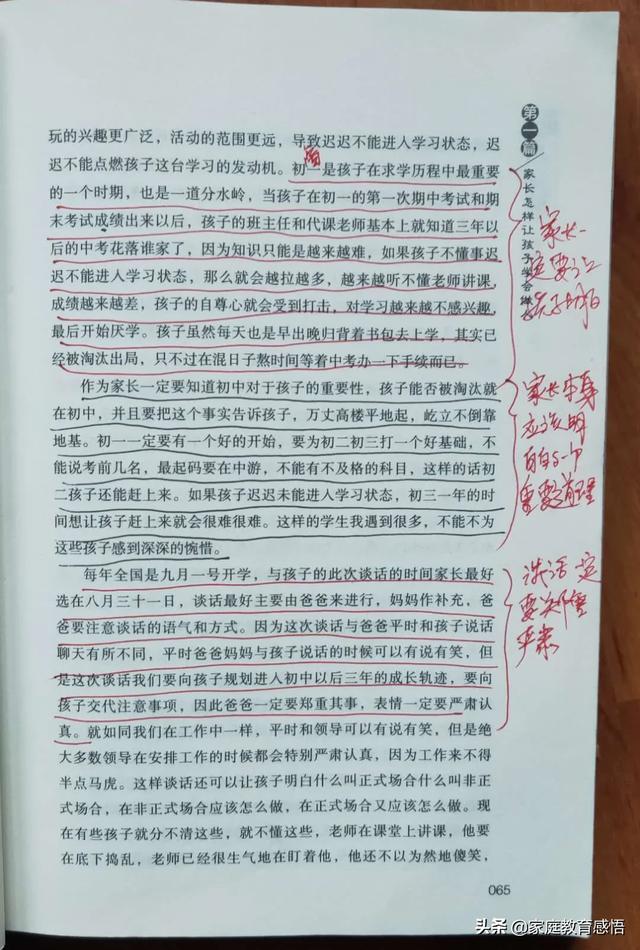 玩的兴趣更广泛，活动的范围更远，导致迟迟不能进入学习状态，迟
迟不能点燃孩子这台学习的发动机。初一是孩子在求学历程中最重要
的一个时期，也是一道分水岭，当孩子在初一的第一次期中考试和期
末考试成绩出来以后，孩子的班主任和代课老师基本上就知道三年以
后的中考花落谁家了，因为知识只能是越来越难，如果孩子不懂事迟
迟不能进入学习状态，那么就会越拉越多，越来越听不懂老师讲课，
成绩越来越差，孩子的自尊心就会受到打击，对学习越来越不感兴趣，
最后开始厌学。孩子虽然每天也是早出晚归背着书包去上学，其实已
经被淘汰出局，只不过在混日子熬时间等着中考办一下手续而已。
作为家长一定要知道初中对于孩子的重要性，孩子能否被淘汰就
在初中，并且要把这个事实告诉孩子，万丈高楼平地起，屹立不倒靠
地基。初一一定要有一个好的开始，要为初二初三打一个好基础，不
能说考前几名，最起码要在中游，不能有不及格的科目，这样的话初
二孩子还能赶上来。如果孩子迟迟未能进入学习状态，初三一年的时
间想让孩子赶上来就会很难很难。这样的学生我遇到很多，不能不为
这些孩子感到深深的惋惜。
每年全国是九月一号开学，与孩子的此次谈话的时间家长最好
选在八月三十一日，谈话最好主要由爸爸来进行，妈妈作补充，爸
爸要注意谈话的语气和方式。因为这次谈话与爸爸平时和孩子说话
聊天有所不同，平时爸爸妈妈与孩子说话的时候可以有说有笑，但
是这次谈话我们要向孩子规划进入初中以后三年的成长轨迹，要向
孩子交代注意事项，因此爸爸一定要郑重其事，表情一定要严肃认
真。就如同我们在工作中一样，平时和领导可以有说有笑，但是绝
大多数领导在安排工作的时候都会特别严肃认真，因为工作来不得
半点马虎。这样谈话还可以让孩子明白什么叫正式场合什么叫非正
式场合，在非正式场合应该怎么做，在正式场合又应该怎么做。现
在有些孩子就分不清这些，就不懂这些，老师在课堂上讲课，他要
在底下捣乱，老师已经很生气地在盯着他，他还不以为然地傻笑，
第一篇
家长怎样让孩子学会
家长一
定要让
孩子明白
家长本身
应该明
重要道理
谈话一定
要郑重
严肃
065
头条 @家庭教育感悟